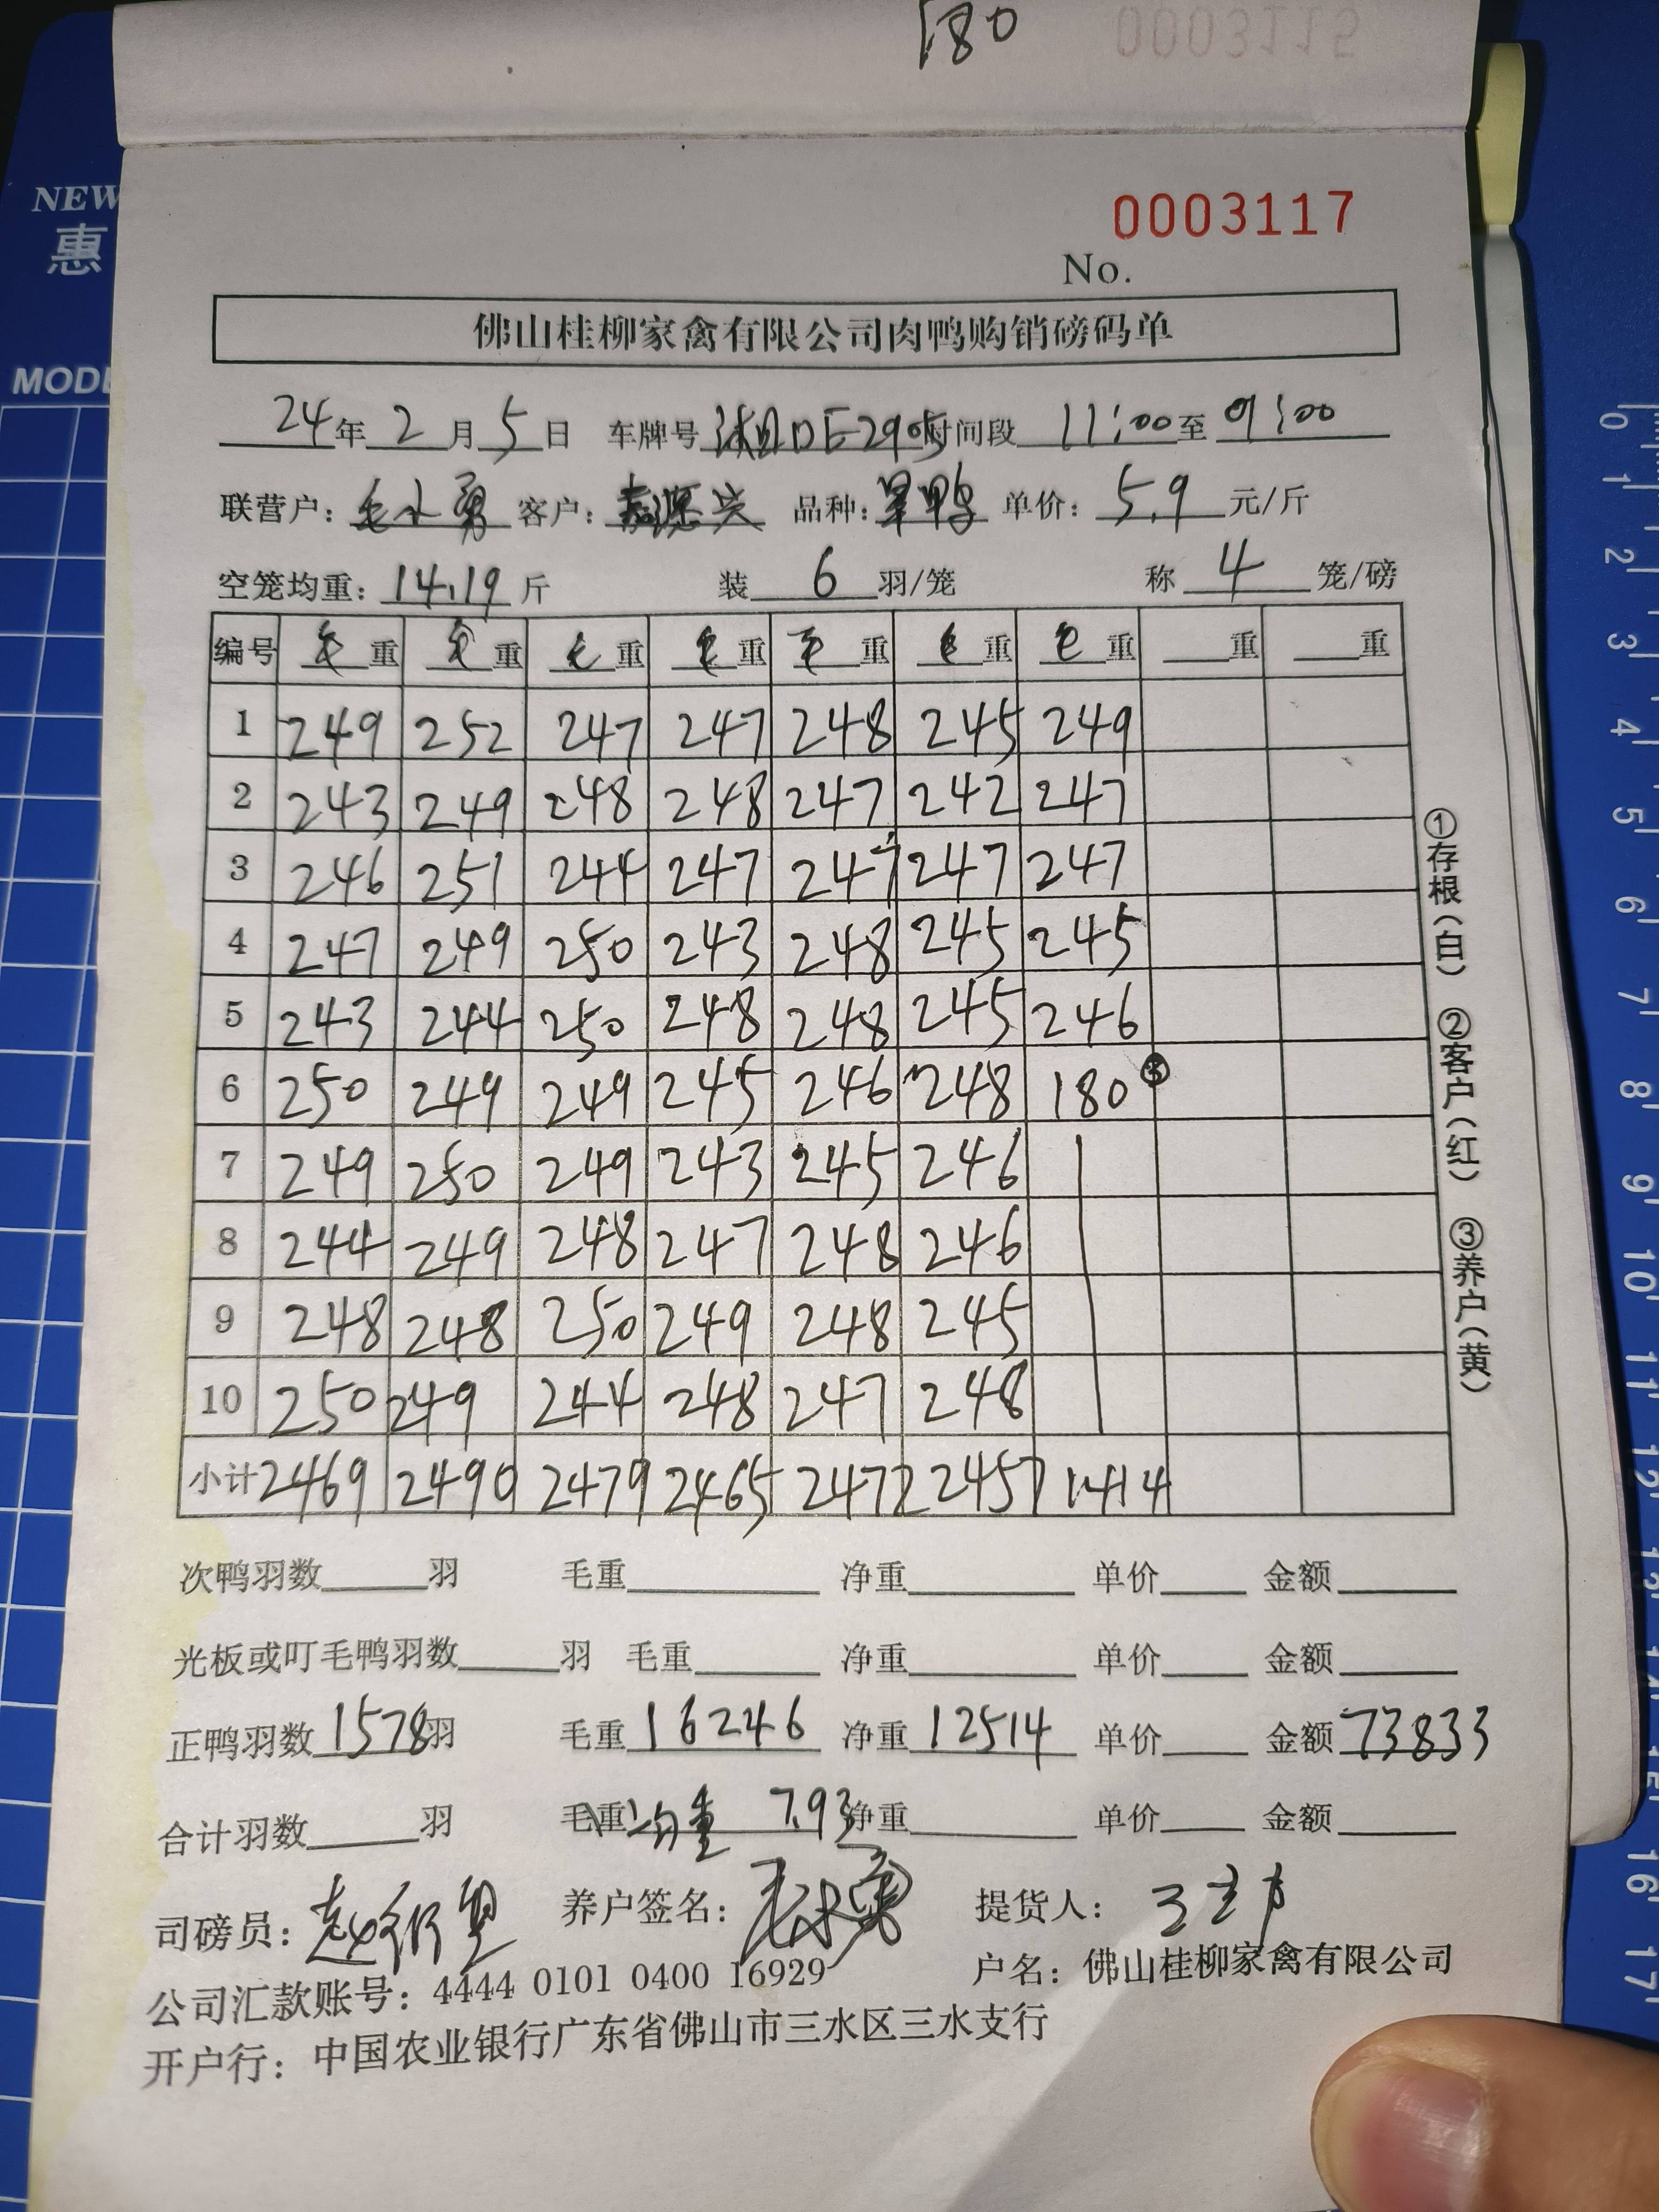 180
0003115
NEW
惠
MODE
0003117
No.
佛山桂柳家禽有限公司肉鸭购销磅码单
24年2月5日 车牌号 DE2905 时间段 11:00至01:00
联营户: 毛水勇 客户: 品种: 旱鸭 单价: 5.9 元/斤
空笼均重: 14.19 斤 装 6 羽/笼 称 4 笼/磅
编号 毛重 毛重 毛重 毛重 毛重 毛重 毛重 重 重
1 249 252 247 247 248 245 249
2 243 249 248 248 247 242 247
3 246 251 244 247 247 247 247
4 247 249 250 243 248 245 245
5 243 244 250 248 248 245 246
6 250 249 249 245 246 248 180 ③
7 249 250 249 243 245 246
8 244 249 248 247 248 246
9 248 248 250 249 248 245
10 250 249 244 248 247 248
小计 2469 2490 2479 2465 2472 2457 1414
次鸭羽数 羽 毛重 净重 单价 金额
光板或叮毛鸭羽数 羽 毛重 净重 单价 金额
正鸭羽数 1578 羽 毛重 16246 净重 12514 单价 金额 73833
合计羽数 羽 毛重 均重 7.93 净重 单价 金额
司磅员: 养户签名: 毛水勇 提货人:
公司汇款账号: 4444 0101 0400 16929 户名: 佛山桂柳家禽有限公司
开户行: 中国农业银行广东省佛山市三水区三水支行
①存根(白) ②客户(红) ③养户(黄)
0
1
2
3
4
5
6
7
8
9
10
11
12
13
14
15
16
17